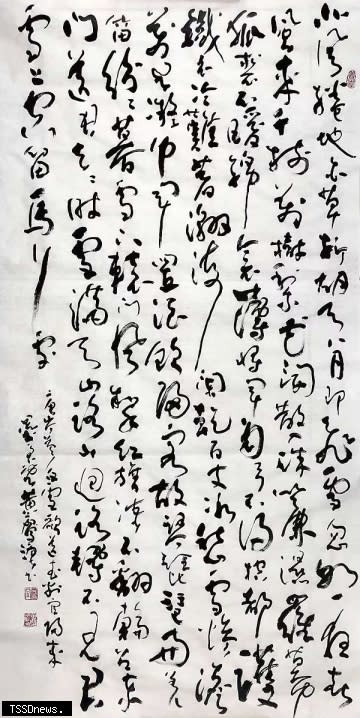 北風捲地白草折胡天八月即飛雪忽如一夜春
風來千樹萬樹梨花開散入珠簾濕羅幕
狐裘不暖錦衾薄將軍角弓不得控都護
鐵衣冷難着瀚海闌干百丈冰愁雲慘澹
萬里凝中軍置酒飲歸客胡琴琵琶與羌
笛紛紛暮雪下轅門風掣紅旗凍不翻輪臺東
門送君去去時雪滿天山路山迴路轉不見君
雪上空留馬行處
唐岑參白雪歌送武判官歸京
TSSDnews.